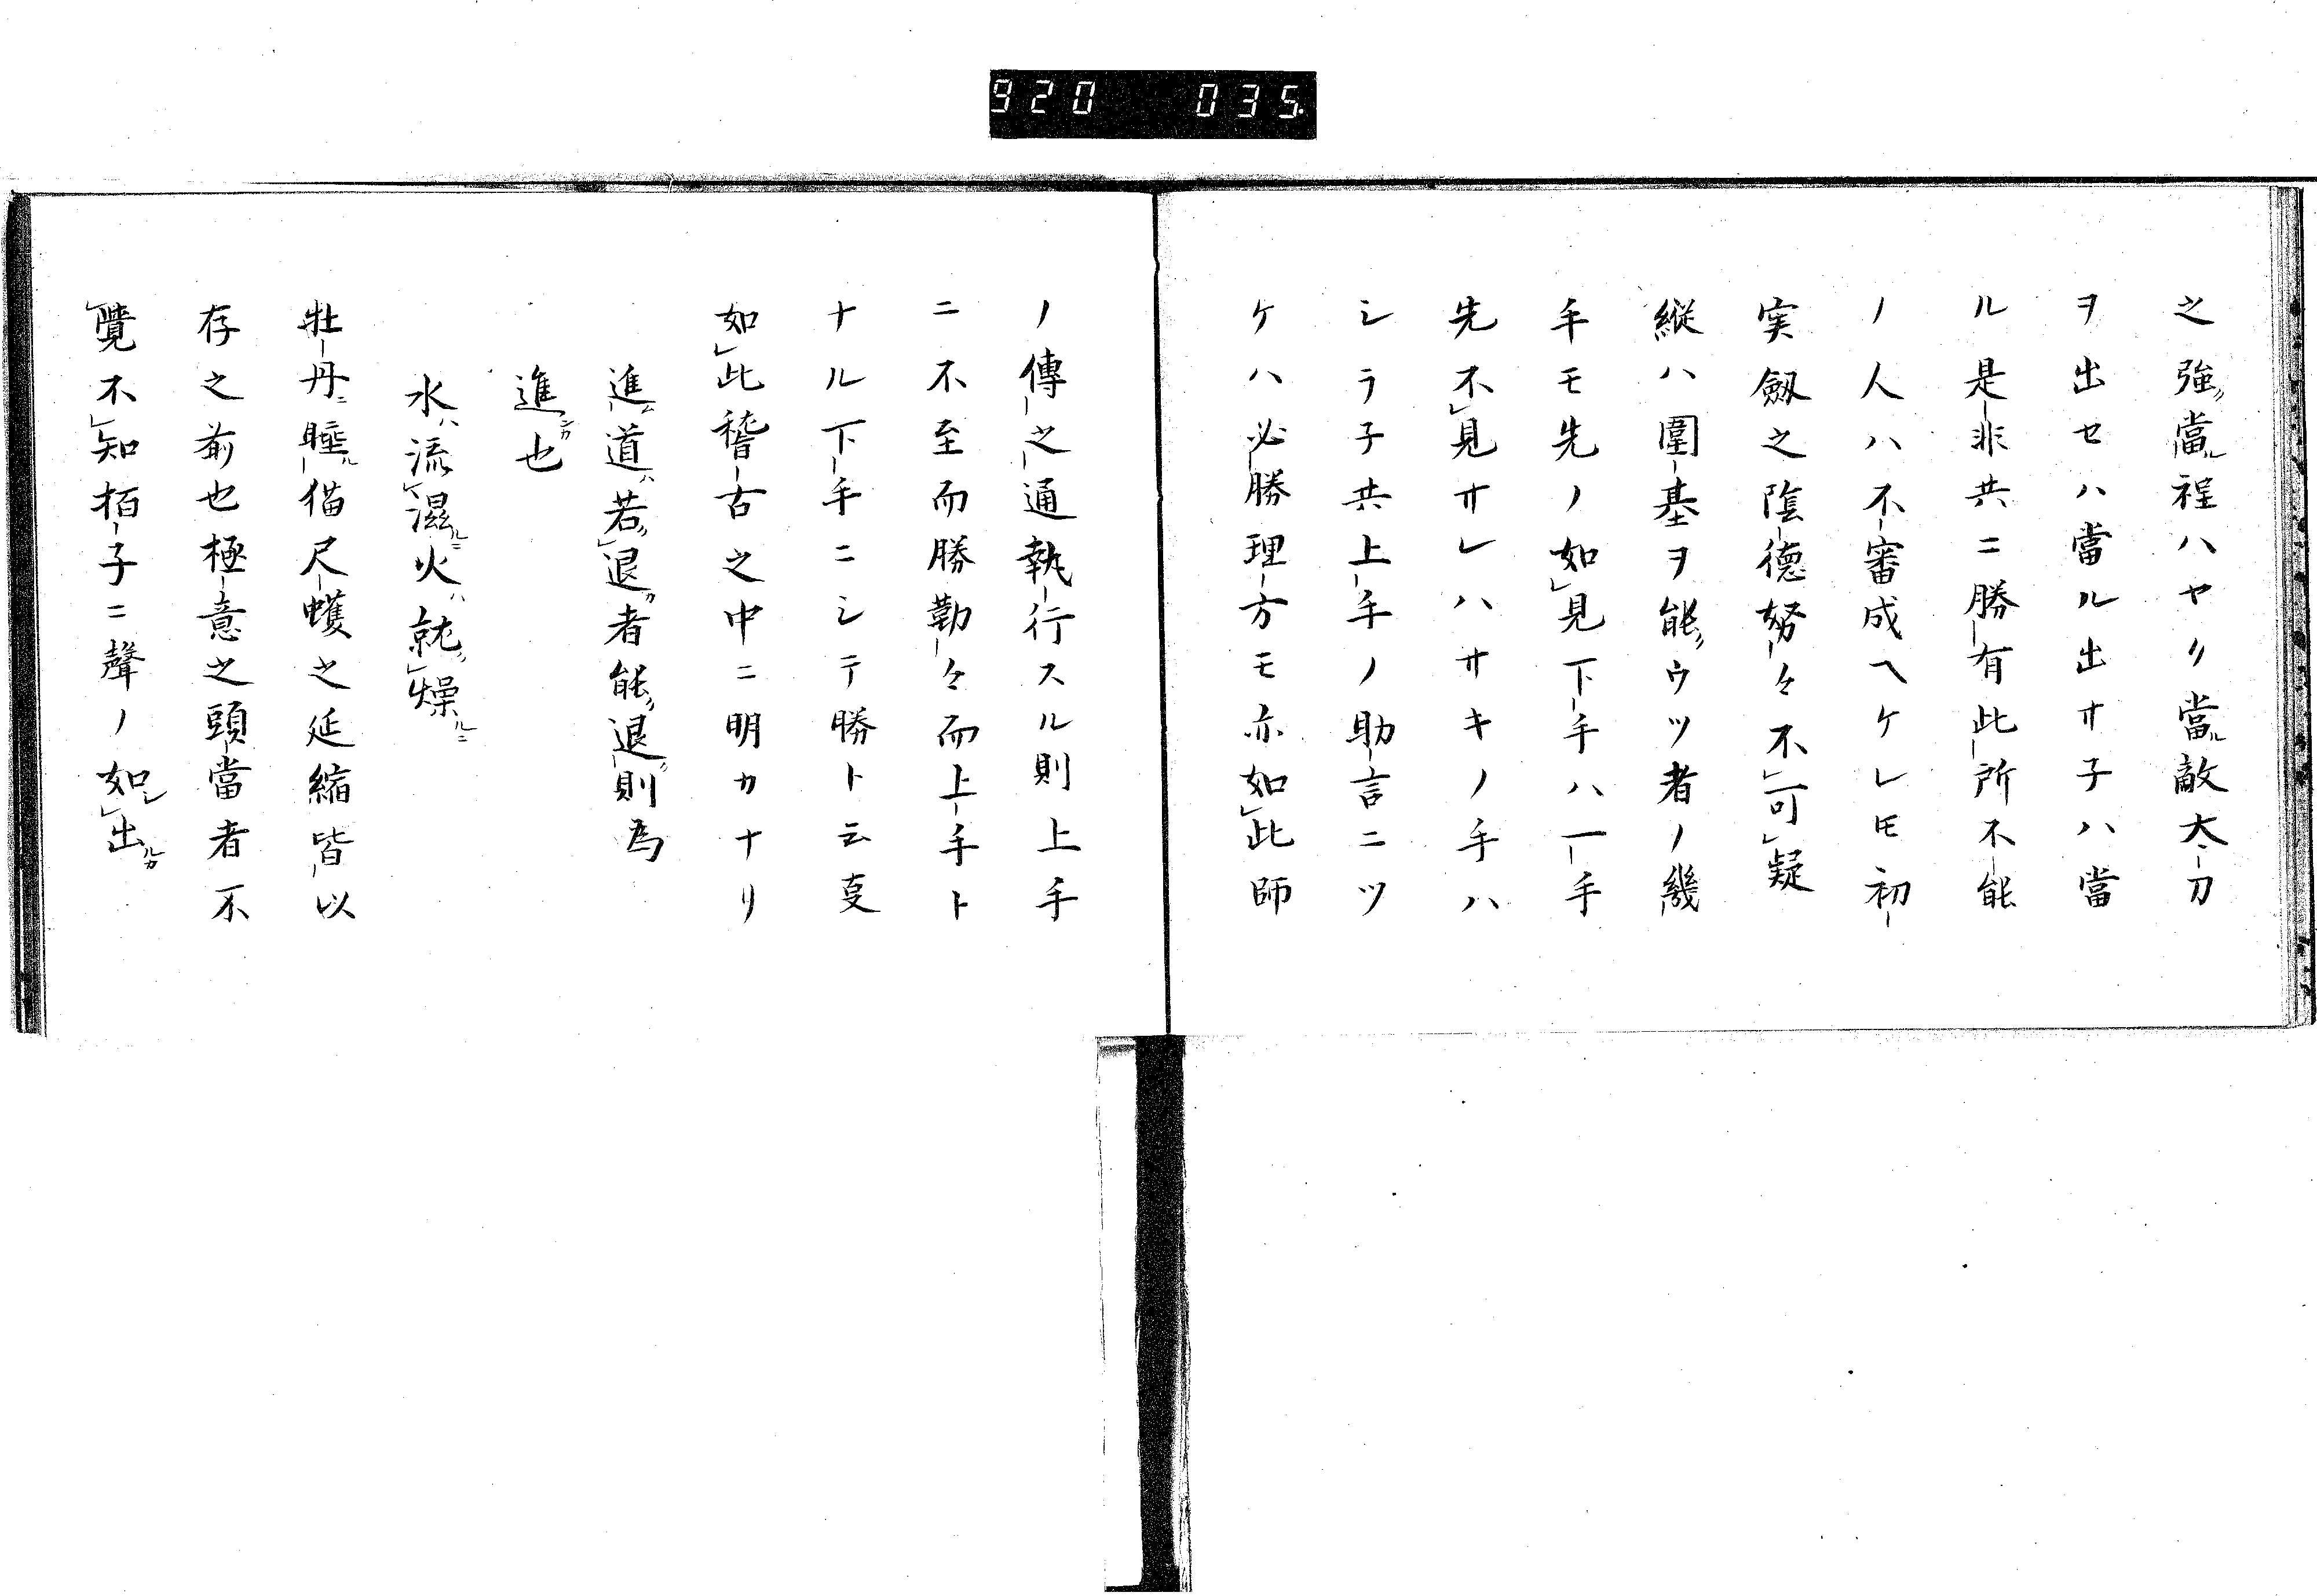 920 035
之強ク當レ程ハヤク當ル敵太刀
ヲ出セハ當ル出サ子ハ當
ル是非共ニ勝有此所不能
ノ人ハ不審成ヘケレ𪜈初
実劔之陰徳努々不可疑
縦ハ圍基ヲ能クウツ者ノ幾
手モ先ノ如見下手ハ一手
先不見サレハサキノ手ハ
シラ子共上手ノ助言ニツ
ケハ必勝理方モ亦如此師
ノ傳之通執行スル則上手
ニ不至而勝勤々而上手ト
ナル下手ニシテ勝ト云叓
如此稽古之中ニ明カナリ
進ム道ハ若ク退クカ者能ク退ク則為
進ニカ也
水ハ流レ濕ルニ火ハ就ク燥ルニ
牡丹ニ睡ル猫尺蠖之延縮皆以
存之前也極意之頭當者不
覺不知栢子ニ聲ノ如シ出ルカ